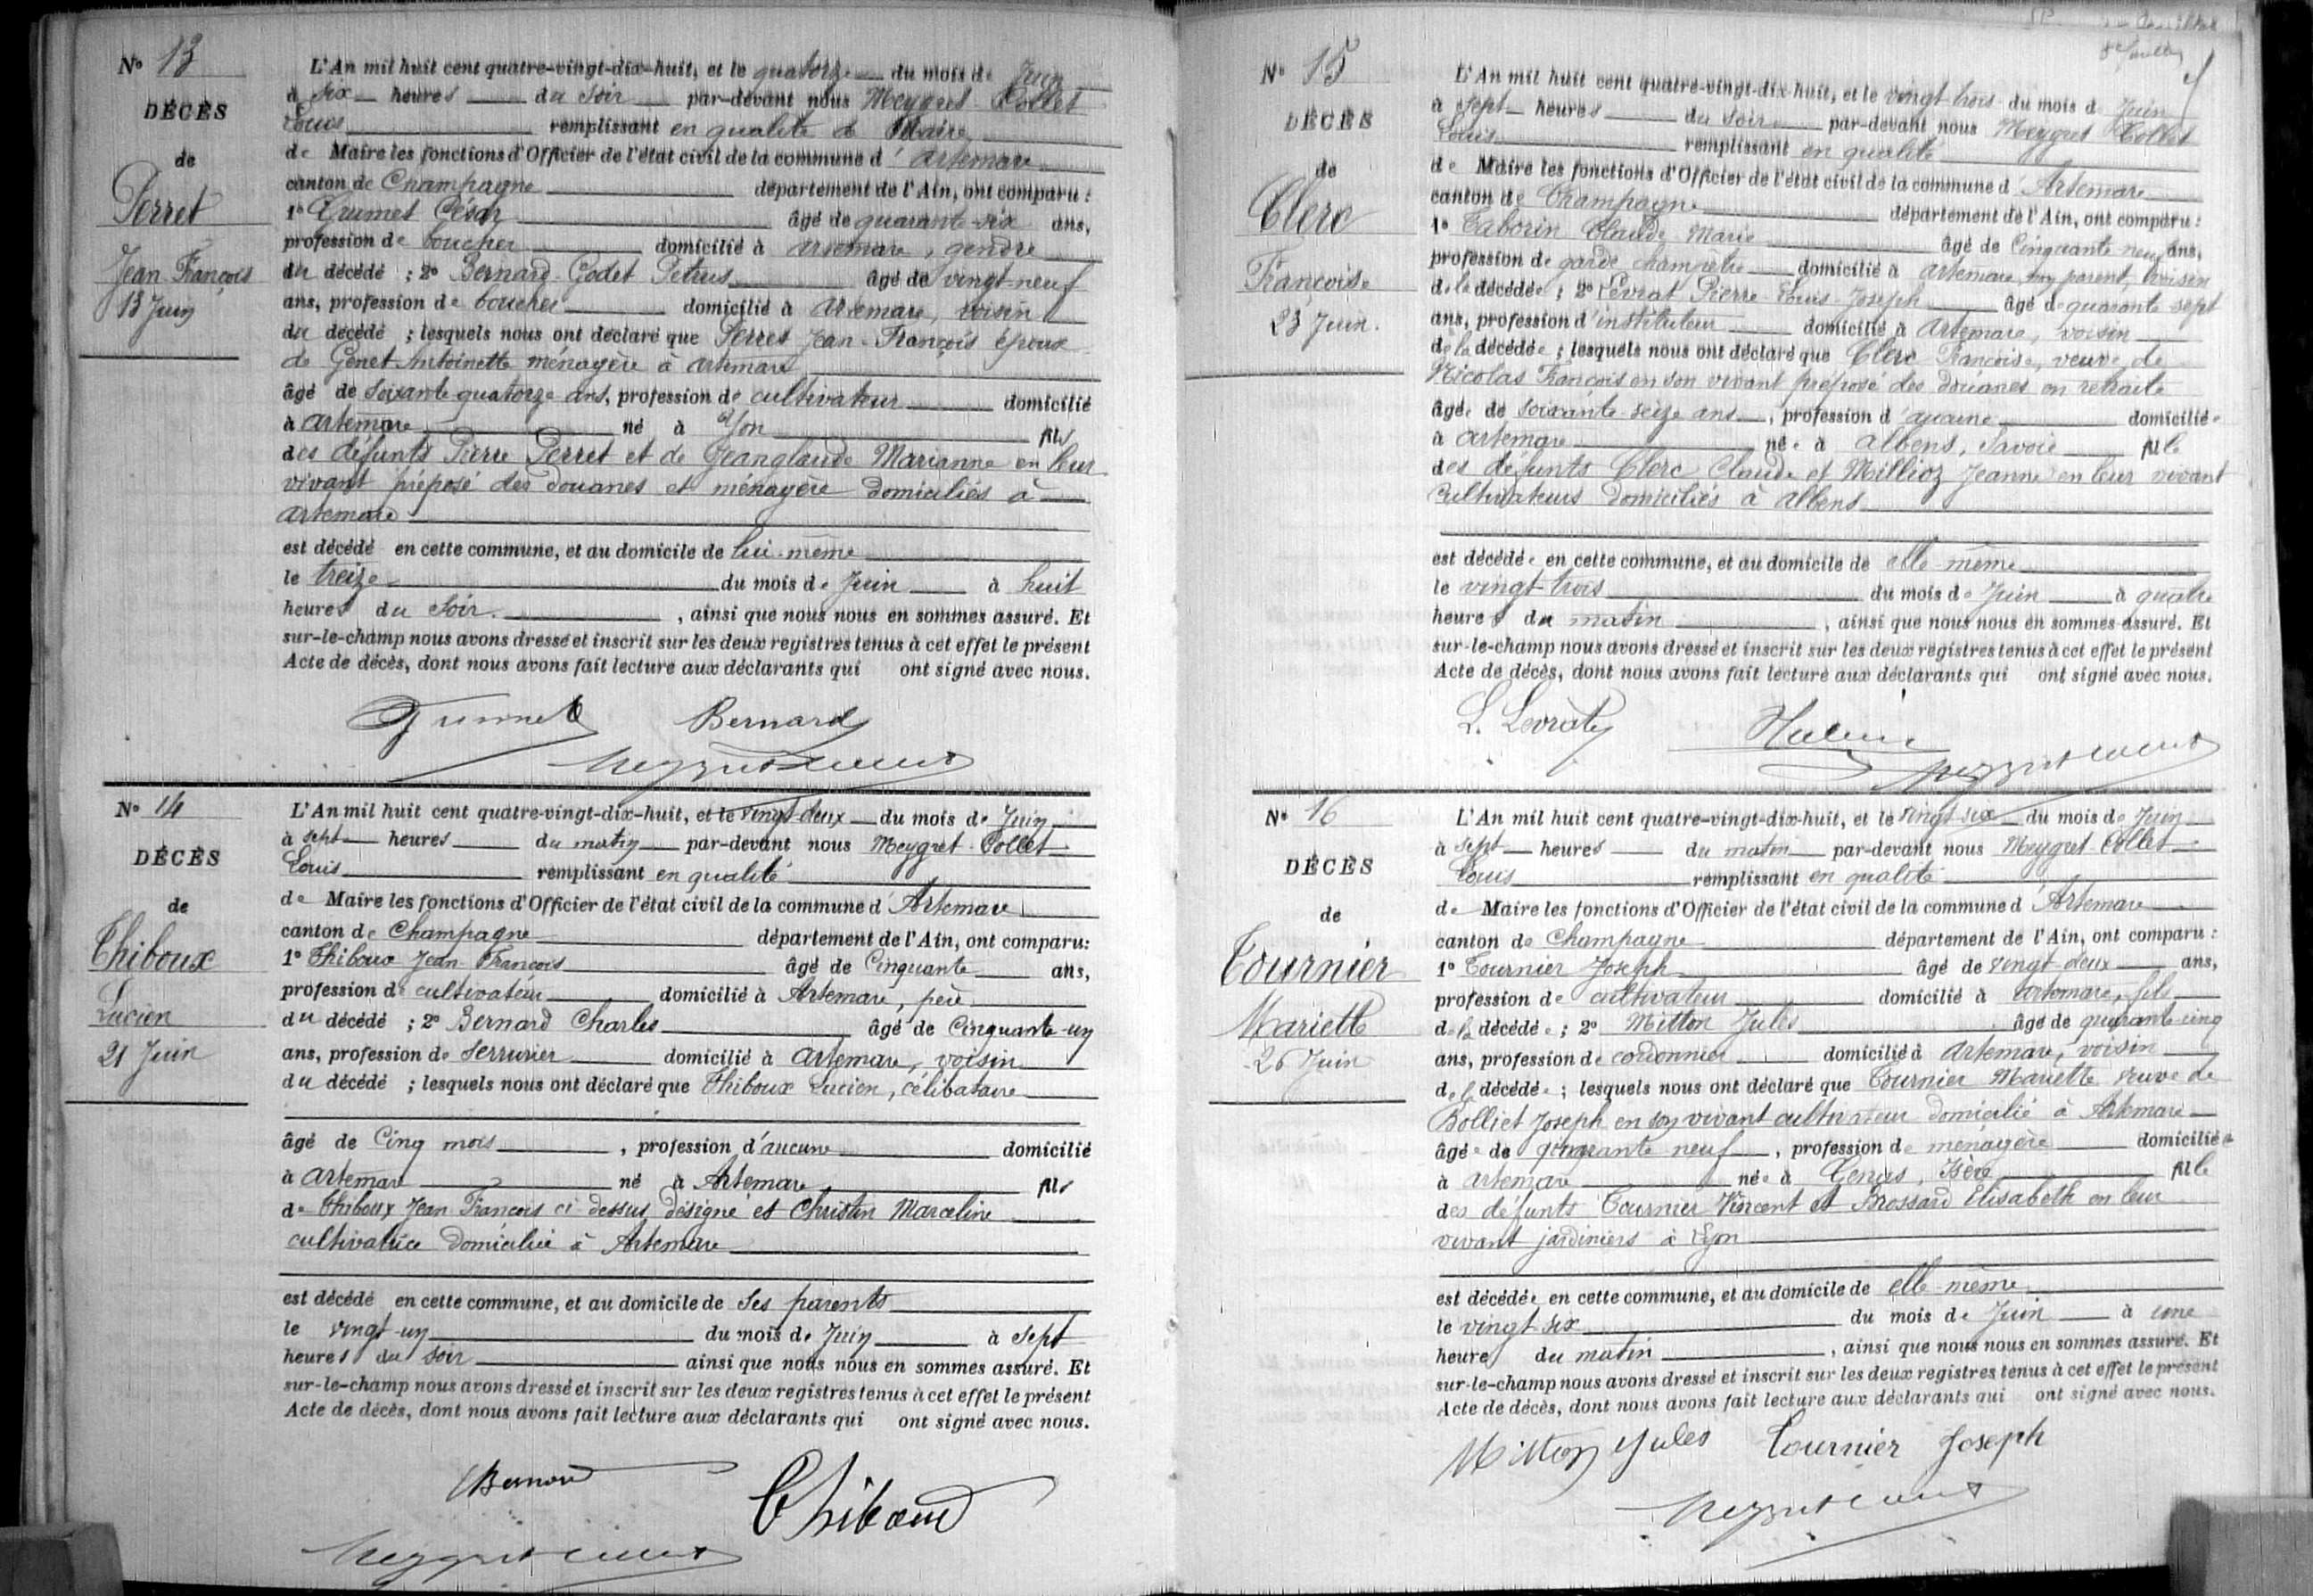 Nº 13
DÉCÈS
de
Perret
Jean-François
13 Juin
L'An mil huit cent quatre-vingt-dix-huit, et le quatorze du mois de Juin
à six heures du soir par-devant nous Meygret-Collet
Louis remplissant en qualité de Maire
de Maire les fonctions d'Officier de l'état civil de la commune d'Artemare
canton de Champagne département de l'Ain, ont comparu :
1º Grumet César âgé de quarante-six ans,
profession de boucher domicilié à artemare, gendre
du décédé ; 2º Bernard-Godet Petrus âgé de vingt-neuf
ans, profession de boucher domicilié à artemare, voisin
du décédé ; lesquels nous ont déclaré que Perret Jean-François époux
de Genet Antoinette ménagère à artemare
âgé de soixante quatorze ans, profession de cultivateur domicilié
à artemare né à Yon fils
des défunts Pierre Perret et de Jeanglaude Marianne en leur
vivant préposé des douanes et ménagère domiciliés à
artemare
est décédé en cette commune, et au domicile de lui-même
le treize du mois de Juin à huit
heures du soir, ainsi que nous nous en sommes assuré. Et
sur-le-champ nous avons dressé et inscrit sur les deux registres tenus à cet effet le présent
Acte de décès, dont nous avons fait lecture aux déclarants qui ont signé avec nous.
Grumet Bernard
Nº 14
DÉCÈS
de
Thiboux
Lucien
21 Juin
L'An mil huit cent quatre-vingt-dix-huit, et le vingt-deux du mois de Juin
à sept heures du matin par-devant nous Meygret-Collet
Louis remplissant en qualité
de Maire les fonctions d'Officier de l'état civil de la commune d'Artemare
canton de Champagne département de l'Ain, ont comparu :
1º Thiboux Jean-François âgé de Cinquante ans,
profession de cultivateur domicilié à Artemare, père
du décédé ; 2º Bernard Charles âgé de Cinquante-un
ans, profession de Serrurier domicilié à artemare, voisin
du décédé ; lesquels nous ont déclaré que Thiboux Lucien, célibataire
âgé de Cinq mois, profession d'aucune domicilié
à artemare né à Artemare fils
de Thiboux Jean François ci-dessus désigné et Christin Marceline
cultivatrice domiciliée à Artemare
est décédé en cette commune, et au domicile de ses parents
le vingt-un du mois de Juin à sept
heures du soir ainsi que nous nous en sommes assuré. Et
sur-le-champ nous avons dressé et inscrit sur les deux registres tenus à cet effet le présent
Acte de décès, dont nous avons fait lecture aux déclarants qui ont signé avec nous.
Bernard Thiboux
Nº 15
DÉCÈS
de
Clerc
Françoise
23 Juin.
L'An mil huit cent quatre-vingt-dix-huit, et le vingt-trois du mois de Juin
à sept heures du soir par-devant nous Meygret Collet
Louis remplissant en qualité
de Maire les fonctions d'Officier de l'état civil de la commune d'Artemare
canton de Champagne département de l'Ain, ont comparu :
1º Taborin Claude Marie âgé de Cinquante neuf ans,
profession de garde champêtre domicilié à artemare, non parent, voisin
de la décédée ; 2º Levrat Pierre-Louis-Joseph âgé de quarante sept
ans, profession d'instituteur domicilié à Artemare, voisin
de la décédée ; lesquels nous ont déclaré que Clerc Françoise, veuve de
Nicolas François en son vivant préposé des douanes en retraite
âgée de soixante-seize ans, profession d'aucune domiciliée
à artemare née à albens, Savoie fille
des défunts Clerc Claude et Millioz Jeanne en leur vivant
cultivateurs domiciliés à albens
est décédée en cette commune, et au domicile de elle-même
le vingt-trois du mois de Juin à quatre
heures du matin, ainsi que nous nous en sommes assuré. Et
sur-le-champ nous avons dressé et inscrit sur les deux registres tenus à cet effet le présent
Acte de décès, dont nous avons fait lecture aux déclarants qui ont signé avec nous.
L. Levrat
Nº 16
DÉCÈS
de
Tournier
Mariette
26 Juin
L'An mil huit cent quatre-vingt-dix-huit, et le vingt-six du mois de Juin
à sept heures du matin par-devant nous Meygret-Collet
Louis remplissant en qualité
de Maire les fonctions d'Officier de l'état civil de la commune d'Artemare
canton de Champagne département de l'Ain, ont comparu :
1º Tournier Joseph âgé de vingt-deux ans,
profession de cultivateur domicilié à artemare, fils
de la décédée ; 2º Mitton Jules âgé de quarante-cinq
ans, profession de cordonnier domicilié à Artemare, voisin
de la décédée ; lesquels nous ont déclaré que Tournier Mariette veuve de
Bolliet Joseph en son vivant cultivateur domicilié à Artemare
âgée de quarante neuf, profession de ménagère domiciliée
à artemare née à Genas, Isère fille
des défunts Tournier Vincent et Brossard Elisabeth en leur
vivant jardiniers à Lyon
est décédée en cette commune, et au domicile de elle-même
le vingt six du mois de Juin à une
heure du matin, ainsi que nous nous en sommes assuré. Et
sur-le-champ nous avons dressé et inscrit sur les deux registres tenus à cet effet le présent
Acte de décès, dont nous avons fait lecture aux déclarants qui ont signé avec nous.
Mitton Jules Tournier Joseph